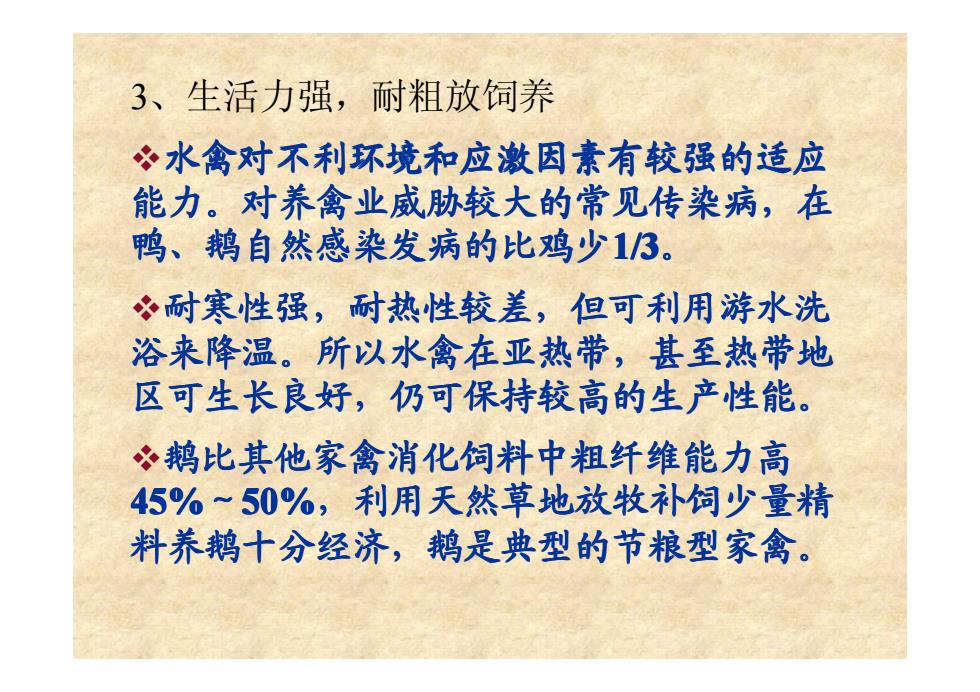 3、生活力强，耐粗放饲养
❖水禽对不利环境和应激因素有较强的适应
能力。对养禽业威胁较大的常见传染病，在
鸭、鹅自然感染发病的比鸡少1/3。
❖耐寒性强，耐热性较差，但可利用游水洗
浴来降温。所以水禽在亚热带，甚至热带地
区可生长良好，仍可保持较高的生产性能。
❖鹅比其他家禽消化饲料中粗纤维能力高
45%～50%，利用天然草地放牧补饲少量精
料养鹅十分经济，鹅是典型的节粮型家禽。